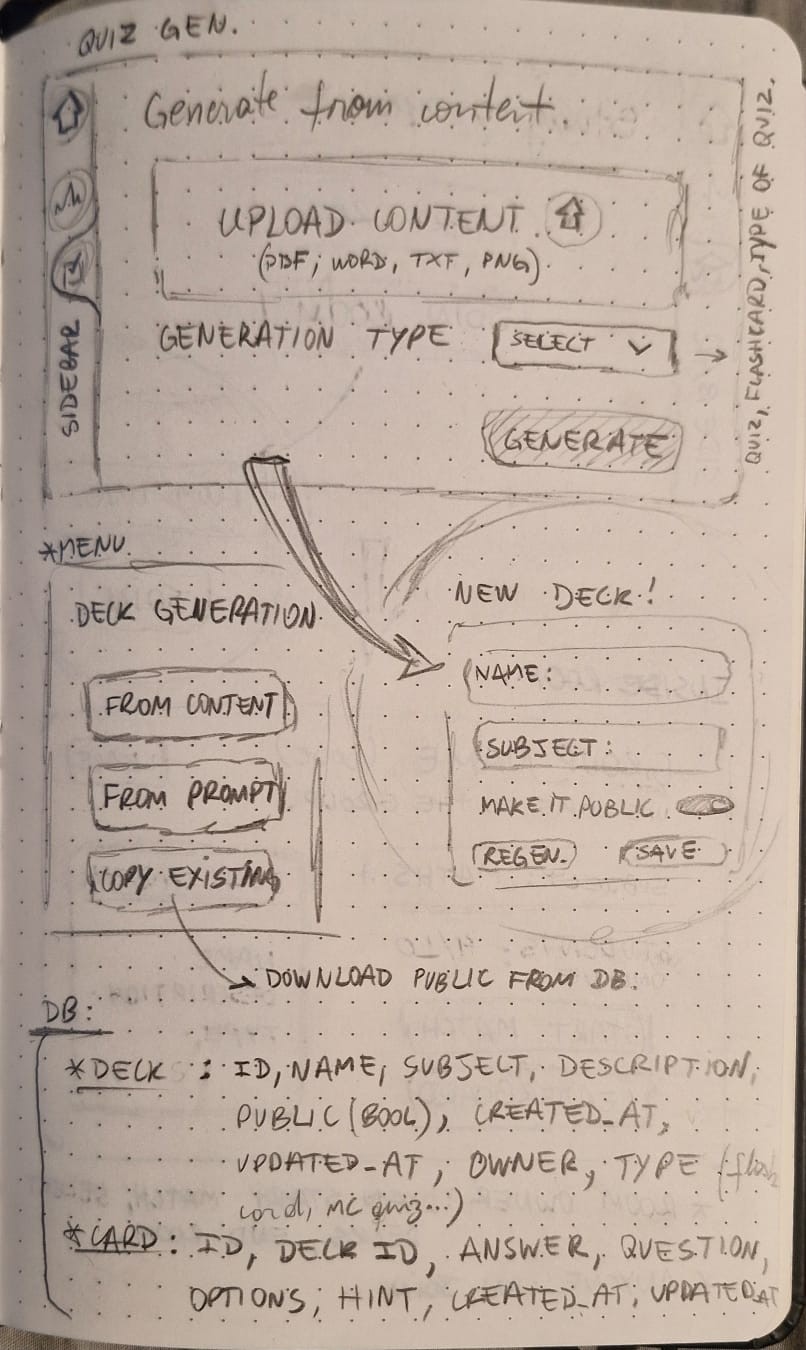 QUIZ GEN.
Generate from content.
UPLOAD CONTENT
(PDF, WORD, TXT, PNG).
GENERATION TYPE
SELECT
QUIZ, FLASHCARD, TYPE OF QUIZ.
GENERATE
SIDEBAR
*MENU
DECK GENERATION
FROM CONTENT
FROM PROMPT
COPY EXISTING
NEW DECK!
NAME:
SUBJECT:
MAKE IT PUBLIC
REGEN.
SAVE
DOWNLOAD PUBLIC FROM DB.
DB:
*DECK : ID, NAME, SUBJECT, DESCRIPTION,
PUBLIC (BOOL), CREATED_AT,
UPDATED_AT, OWNER, TYPE (flash
card, MC quiz...)
*CARD: ID, DECK ID, ANSWER, QUESTION,
OPTIONS, HINT, CREATED_AT, UPDATED_AT